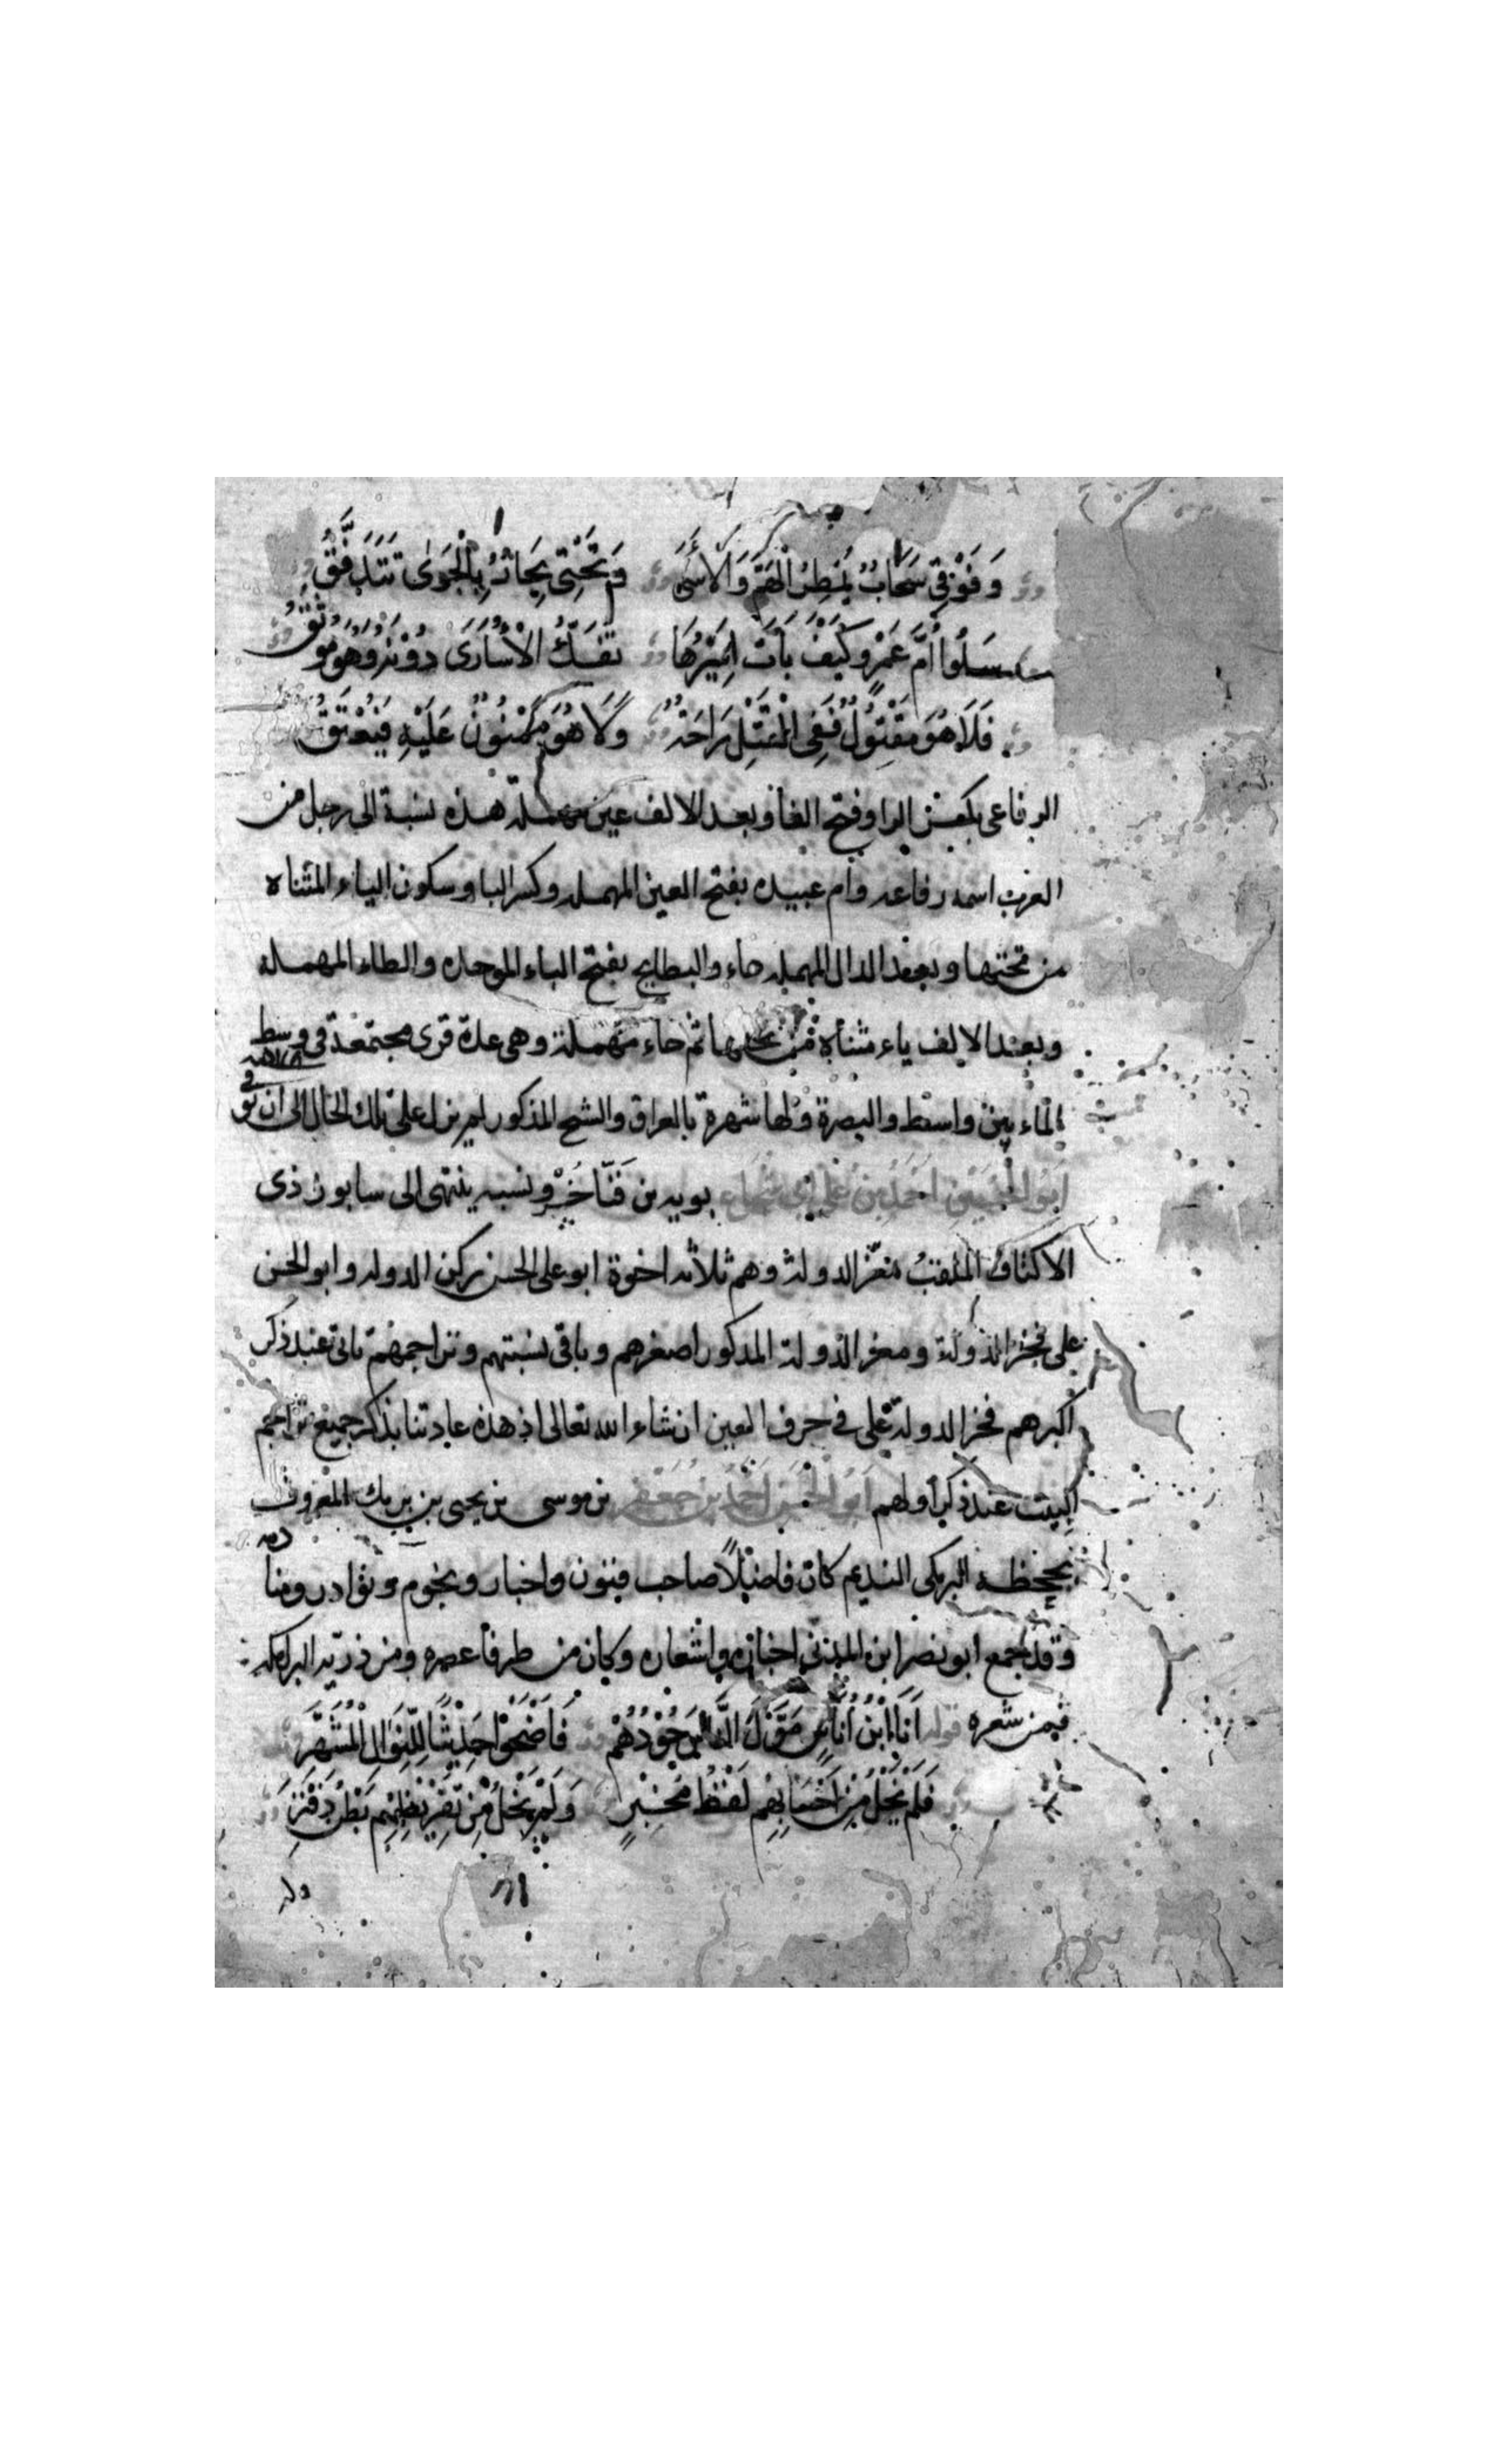 وَفَوْقِي سَحَابٌ يُمْطِرُ الْهَمَّ وَالْأَسَى وَتَحْتِي بِحَارٌ بِالْجَوَى تَتَدَفَّقُ
سَلُوا أُمَّ عَمْرٍو كَيْفَ بَاتَ أَسِيرُهَا تُفَكُّ الْأُسَارَى دُونَهُ وَهُوَ مُوثَقُ
فَلَا هُوَ مَقْتُولٌ فَفِي الْقَتْلِ رَاحَةٌ وَلَا هُوَ مَمْنُونٌ عَلَيْهِ فَيُعْتَقُ
الرفاعى بكسر الرا وفتح الفا وبعد الالف عين مهملة هذه نسبة الى رجل من
العرب اسمه رفاعه وام عبيده بفتح العين المهمله وكسر البا وسكون الياء المثناه
من تحتها وبعد الدال المهمله هاء والبطايح بفتح الباء الموحده والطاء المهملة
وبعد الالف ياء مثناة من تحتها ثم حاء مهملة وهى عدة قرى مجتمعة فى وسط
الماء بين واسط والبصرة ولها شهرة بالعراق والشيخ المذكور لم يزل على تلك الحال الى ان توفى
ابو الحسين احمد بن على ابى شجاع بويه بن فَنَّاخُسْرُو ونسبه ينتهى الى سابور ذى
الاكتاف الملقب معز الدولة وهم ثلاثه اخوة ابو على الحسن ركن الدوله وابو الحسن
على فخر الدولة ومعز الدولة المذكور اصغرهم وباقى نسبتهم وتراجمهم ياتى عند ذكر
اكبرهم فخر الدولة على فى حرف العين ان شاء الله تعالى اذ هذه عادتنا بذكر جميع تراجم
البيت عند ذكر أولهم ابو الحسن احمد بن جعفر بن موسى بن يحيى بن برمك المعروف
بجحظه البرمكى النديم كان فاضلاً صاحب فنون واخبار ونجوم ونوادر ومنادمه
وقد جمع ابو نصر ابن المرزبانى اخباره واشعاره وكان من ظرفا عصره ومن ذرية البرامكه
فمن شعره قوله أَنَا ابْنُ أُنَاسٍ مَوَّلَ النَّاسَ جُودُهُمْ فَأَضْحَوْا حَدِيثًا لِلنَّوَالِ الْمُشَهَّرِ
فَلَمْ يَخْلُ مِنْ إِحْسَانِهِمْ لَفْظُ مُخْبِرٍ وَلَمْ يَخْلُ مِنْ تَقْرِيظِهِمْ بَطْنُ دَفْتَرِ
وله